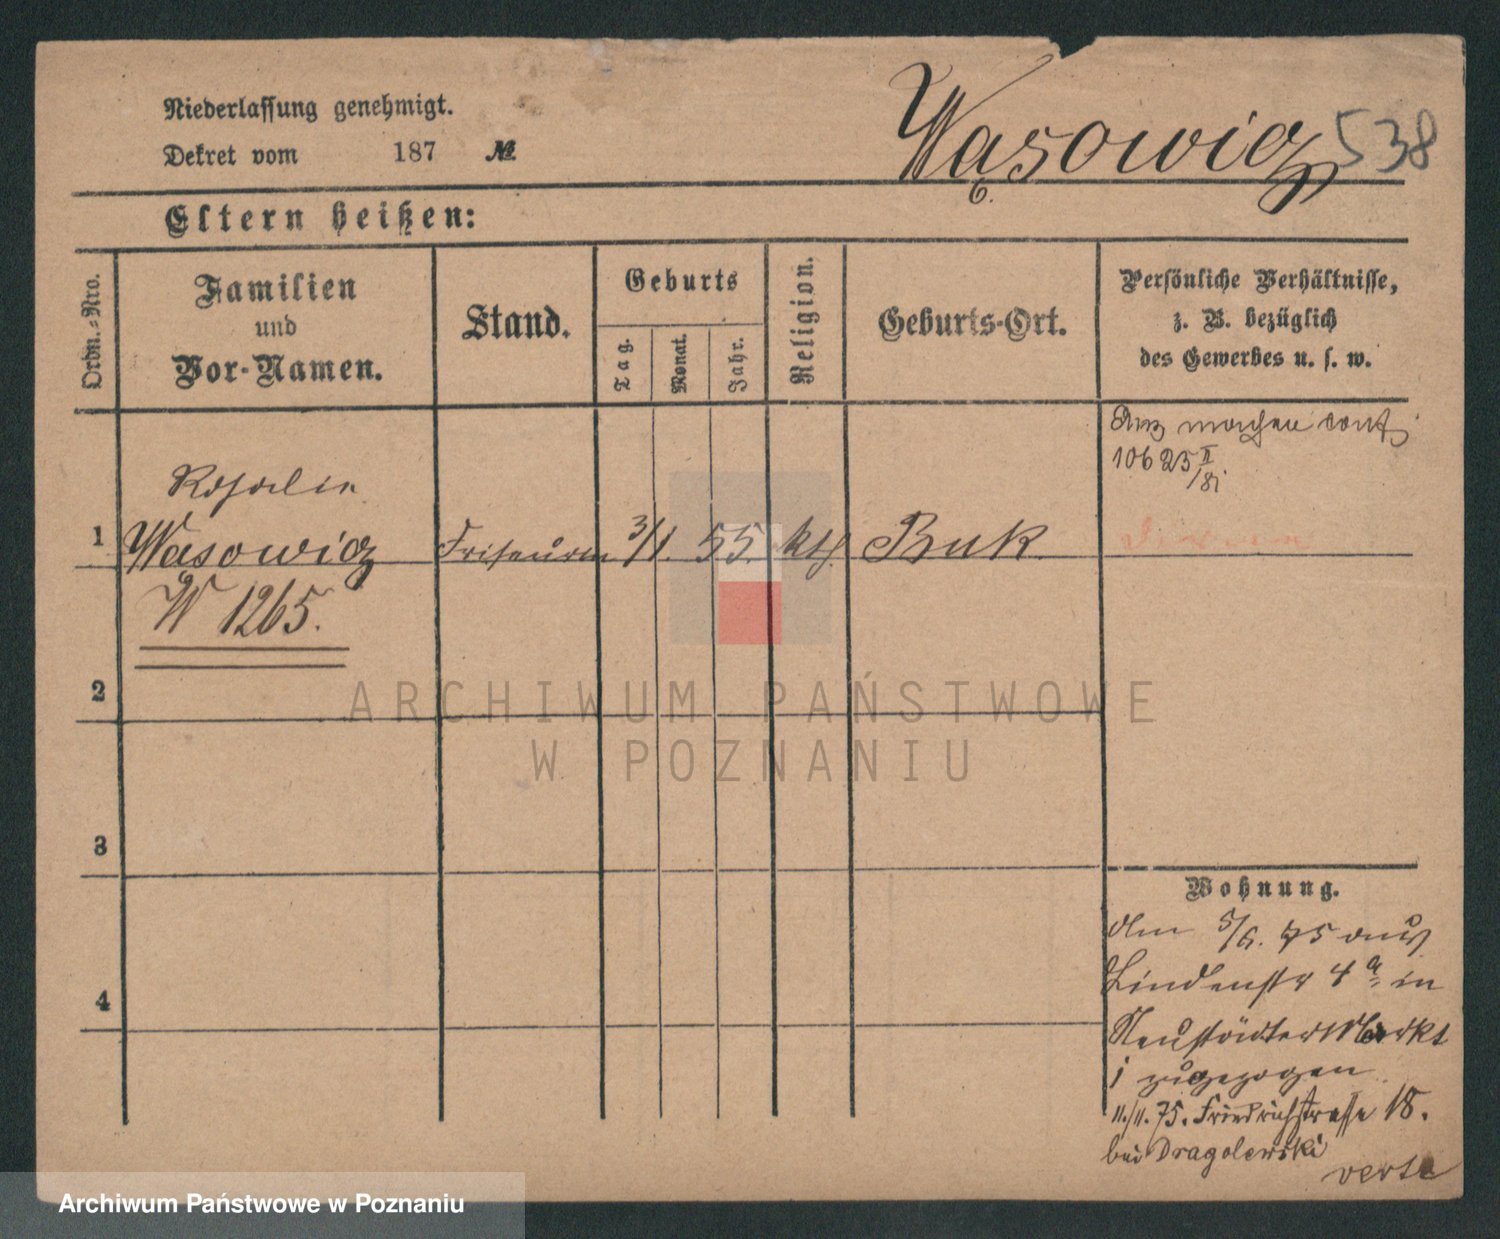 Niederlassung genehmigt.
Dekret vom 187 №
Wąsowicz 538
Eltern heißen:
Ordn.-Nro.
Familien
und
Vor-Namen.
Stand.
Geburts
Tag.
Monat.
Jahr.
Religion.
Geburts-Ort.
Persönliche Verhältnisse,
z. B. bezüglich
des Gewerbes u. s. w.
10623 II
/81
Rosalie
1 Wasowicz Friseurin 3/1. 55. kth. Buk
W 1265.
2
3
4
Wohnung.
Am 5/6. 75 aus
Lindenstr 4a in
Neustädter Markt
1 zugezogen
11./11. 75. Friedrichstrasse 18.
bei Dragolewski
verte
ARCHIWUM PAŃSTWOWE
W POZNANIU
Archiwum Państwowe w Poznaniu